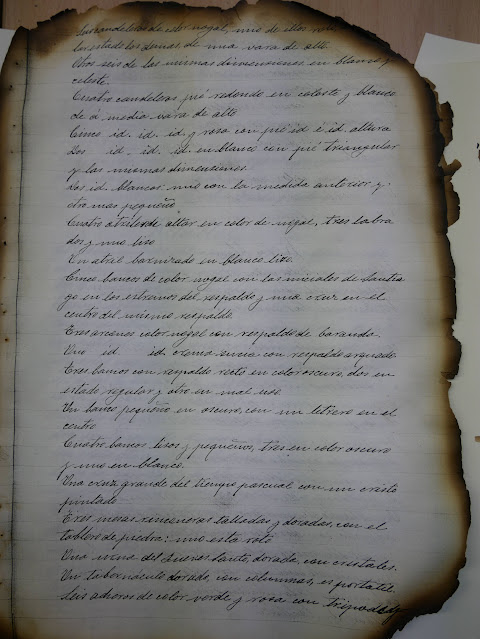 Seis candeleros de color nogal, uno de ellos roto
los estados los demas, de una vara de alto.
Otros seis de las mismas dimensiones en blanco y
celeste.
Cuatro candeleros pié redondo en celeste y blanco
de a media vara de alto
Cinco id. id. id. y rosa con pié id é id. altura
Dos id. id. id. en blanco con pié triangular
y las mismas dimensiones.
Dos id. blancos: uno con la medida anterior y
otro mas pequeño
Cuatro atriles de altar en color de nogal, tres labra
dos y uno liso
Un atril barnizado en blanco liso.
Cinco bancos de color nogal con las iniciales de Santia
go en los estremos del respaldo y una cruz en el
centro del mismo respaldo.
Tres escaños color nogal con respaldo de baranda.
Uno id id. crema oscuro con respaldo arqueado.
Tres bancos con respaldo recto en color oscuro, dos en
estado regular y otro en mal uso.
Un banco pequeño en oscuro, con un letrero en el
centro
Cuatro bancos lisos y pequeños, tres en color oscuro
y uno en blanco.
Una cruz grande del tiempo pascual con un cristo
pintado
Tres mesas rinconeras talladas y doradas, con el
tablero de piedra: uno está roto
Una urna del Jueves Santo, dorada, con cristales.
Un tabernáculo dorado, con columnas, es portatil.
Seis de color verde y rosa con tripode